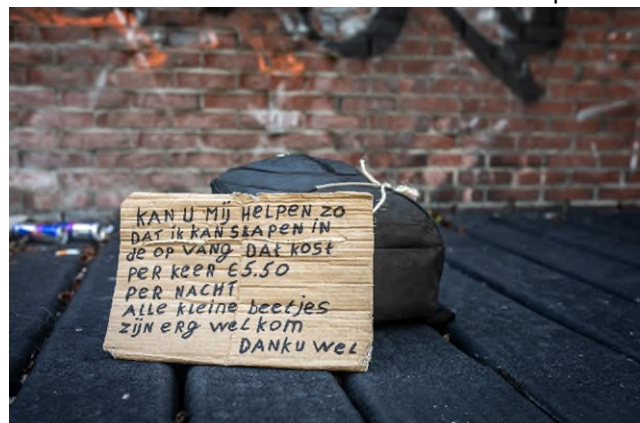 KAN U Mij HELPEN ZO
DAT ik KAN SLAPEN IN
de OP VANG DAt kost
PER KEER €5.50
PER NACHT
Alle kleine beetjes
zijn erg welkom
DANKU wel